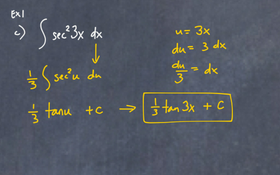 Ex 1
c) ∫ sec²3x dx
u = 3x
du = 3 dx
du/3 = dx
1/3 ∫ sec²u du
1/3 tan u + C → 1/3 tan 3x + C